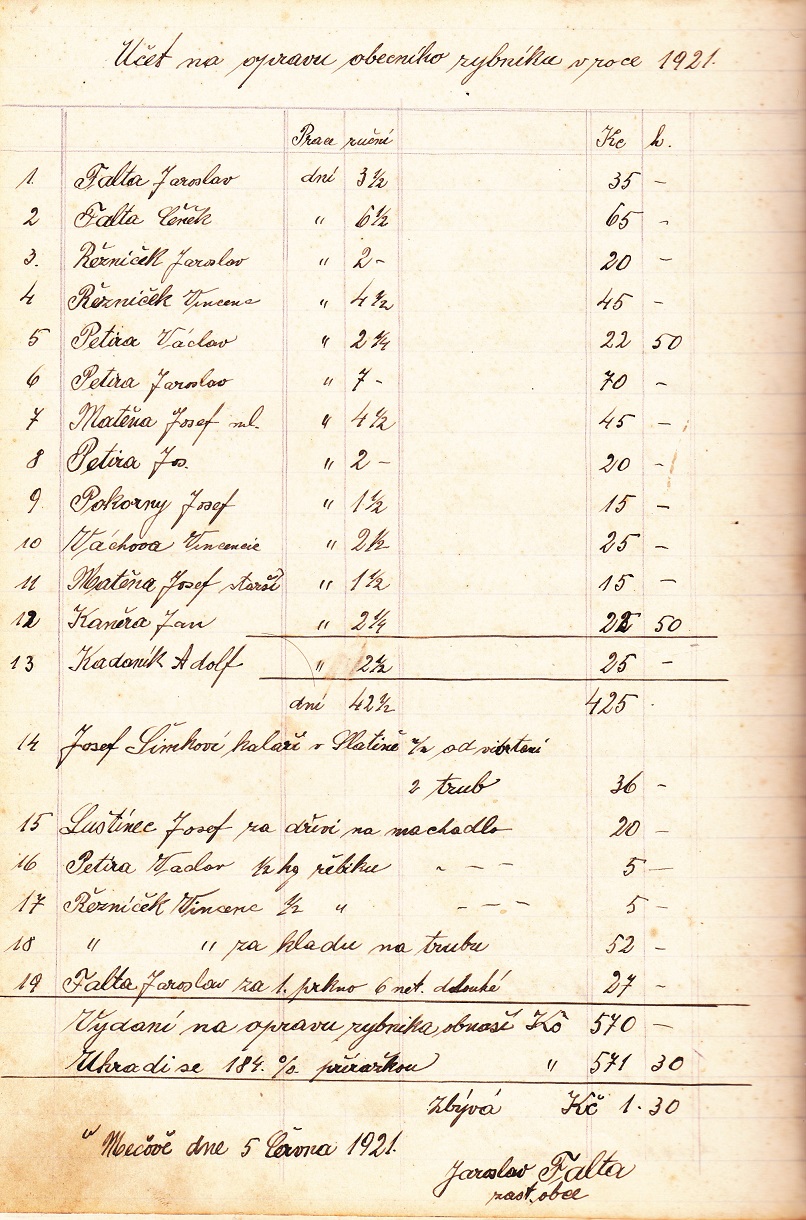 Učet na opravu obecního rybníku v roce 1921.
Prace ruční Kc h.
1. Falta Jaroslav dní 3 1/2 35 –
2 Falta Čeněk " 6 1/2 65 –
3. Řezníček Jaroslav " 2 – 20 –
4 Řezníček Vincenc " 4 1/2 45 –
5 Petira Václav " 2 1/4 22 50
6 Petira Jaroslav " 7 – 70 –
7 Matěna Josef ml. " 4 1/2 45 –
8 Petira Jos. " 2 – 20 –
9 Pokorny Josef " 1 1/2 15 –
10 Váchova Vincencie " 2 1/2 25 –
11 Matěna Josef starší " 1 1/2 15 –
12 Kaněra Jan " 2 1/4 22 50
13 Kadaník Adolf " 2 1/2 25 –
dní 42 1/2 425
14 Josef Šimkovi kolaři v Slatině od vibrtaní
2 trub 36 –
15 Luštinec Josef za dřivi na machadlo 20 –
16 Petira Vaclav 1/2 kg řebiku - – – – 5 –
17 Řezníček Vincenc 1/2 " – – – 5 –
18 " " za kladu na trubu 52 –
19 Falta Jaroslav za 1. prkno 6 met. dlouhé 27 –
Vydaní na opravu rybnika obnaší Kč 570 –
Uhradi se 184. % přiražkou " 571 30
Zbývá Kč 1. 30
v Mečově dne 5 Června 1921.
Jaroslav Falta
zast. obce